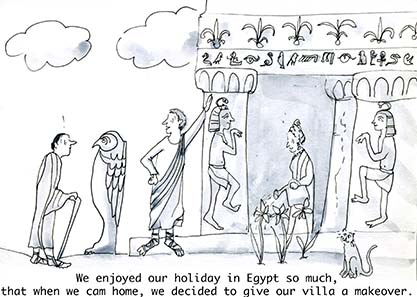 We enjoyed our holiday in Egypt so much,
that when we cam home, we decided to give our villa a makeover.